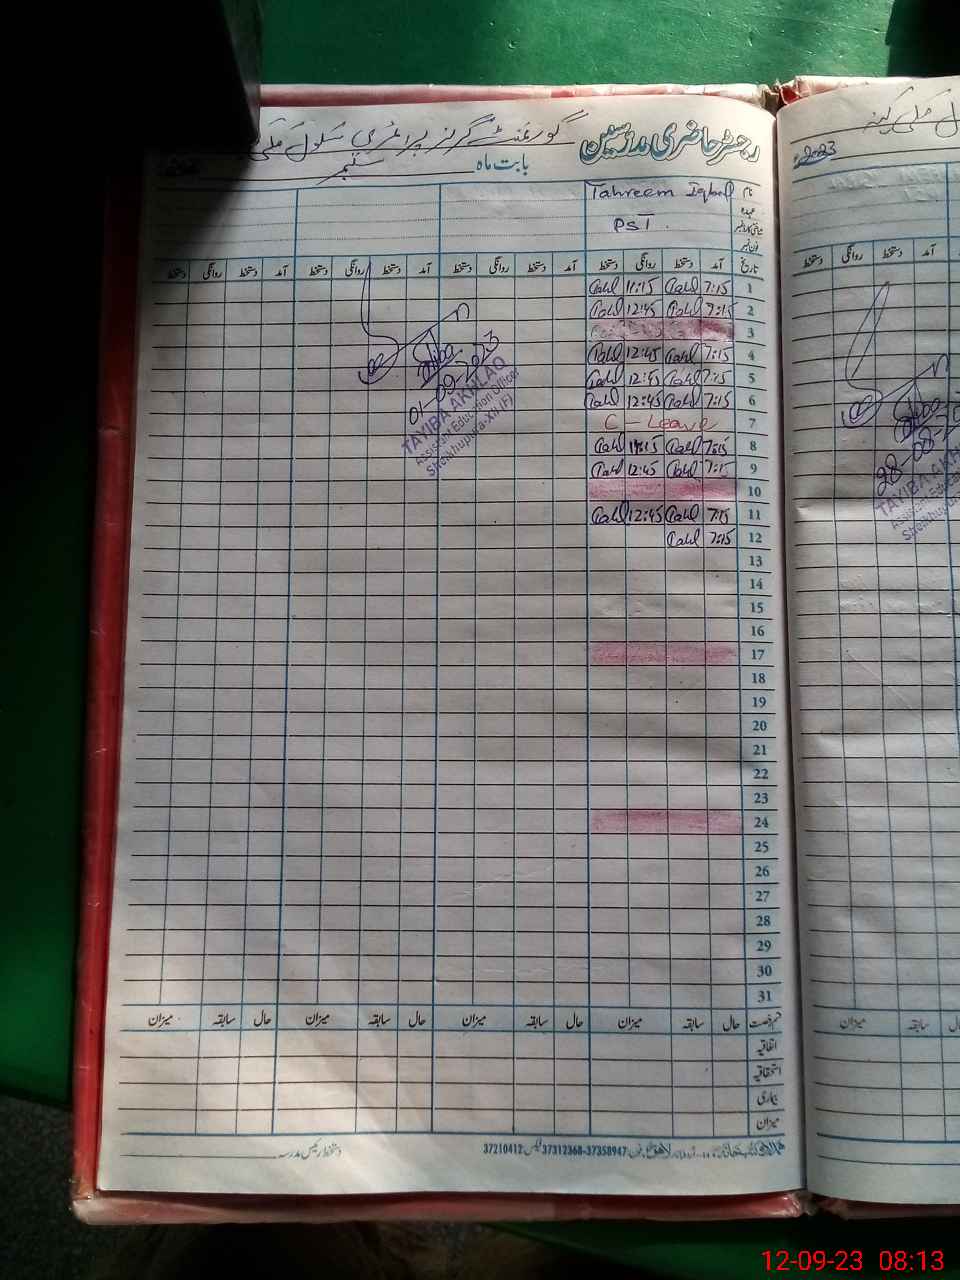 رجسٹر حاضری مدرسین گورنمنٹ گرلز پرائمری سکول
بابت ماہ ستمبر
2023
نام Tahreem Iqbal
عہدہ PST
تاریخ آمد دستخط روانگی دستخط آمد دستخط روانگی دستخط آمد دستخط روانگی دستخط آمد دستخط روانگی دستخط
1 7:15 11:15
2 7:15 12:45
3
4 7:15 12:45
5 7:15 12:45
6 7:15 12:45
7 C - Leave
8 7:15 11:15
9 7:15 12:45
10
11 7:15 12:45
12 7:15
13
14
15
16
17
18
19
20
21
22
23
24
25
26
27
28
29
30
31
01-09-2023
TAYIBA AKHLAQ
Assistant Education Officer
Sheikhupura-XII (F)
قسم رخصت حال سابقہ میزان حال سابقہ میزان حال سابقہ میزان حال سابقہ میزان
اتفاقیہ
استحقاقیہ
بیماری
میزان
37312368-37358947 فیکس 37210412
دستخط رئیس مدرسہ
28-08-
TAYIBA AKH
Assistant Educa
Sheikhupura
روانگی دستخط
میزان سابقہ
12-09-23 08:13